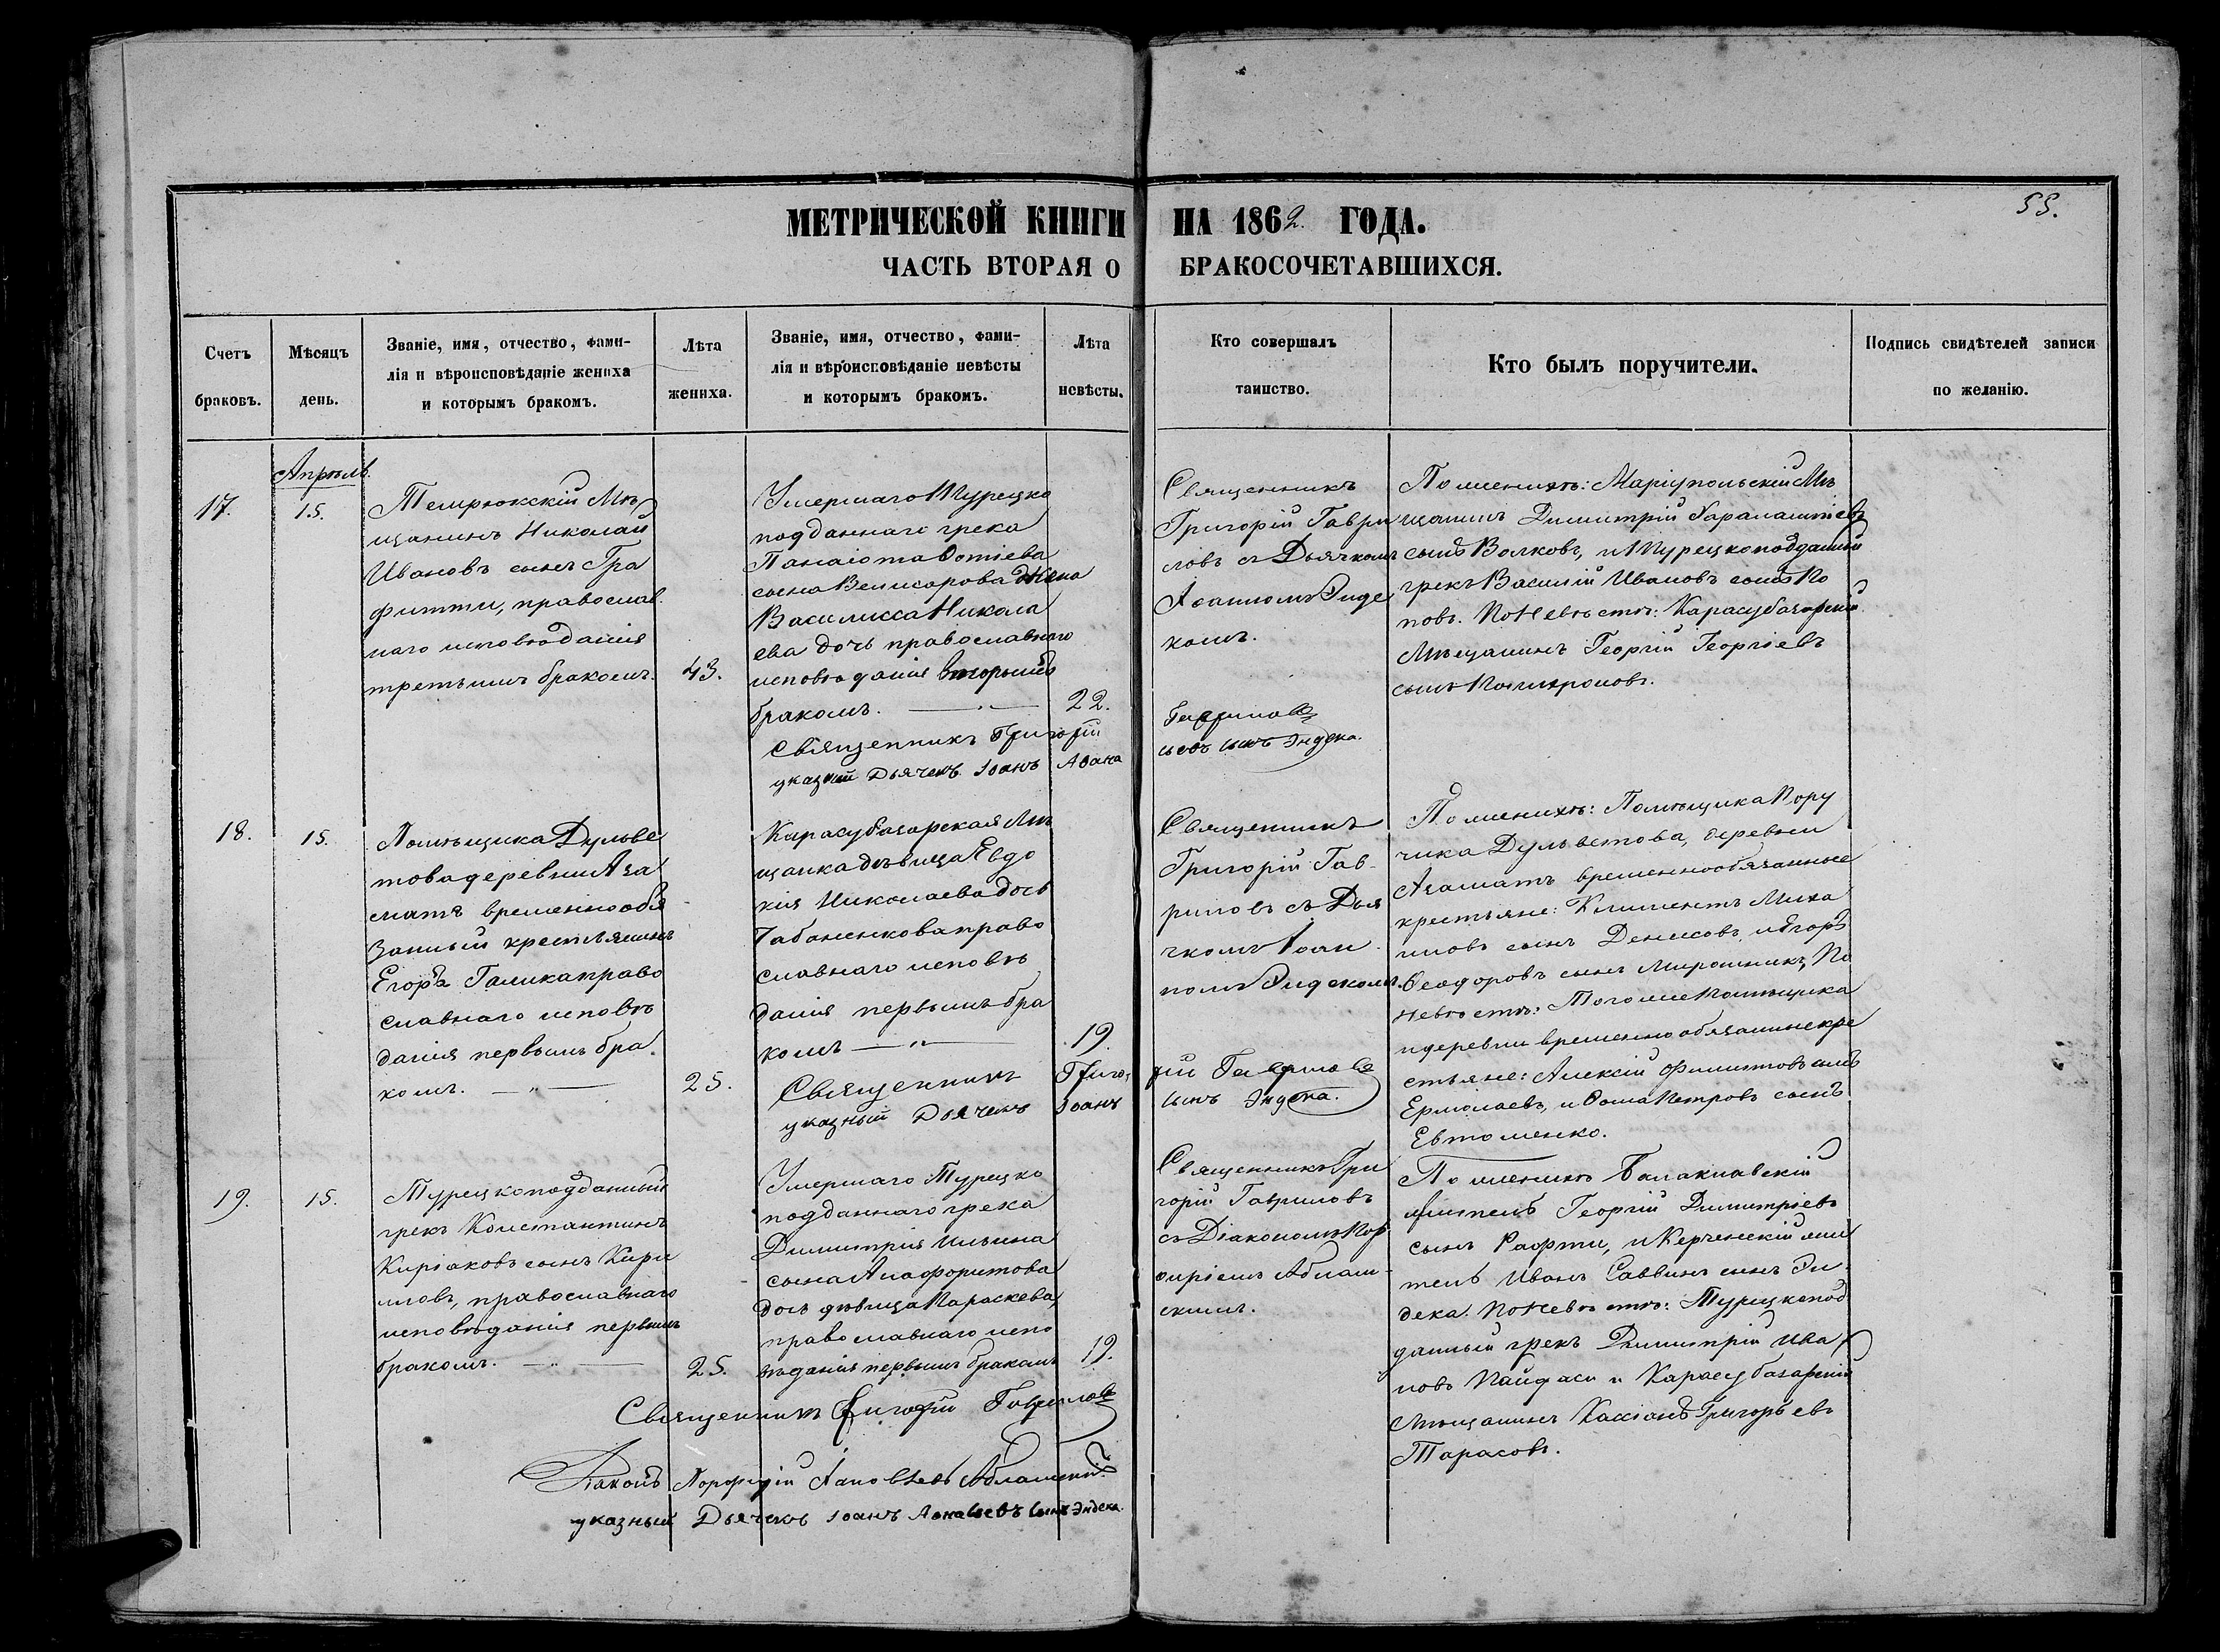 55.
МЕТРИЧЕСКОЙ КНИГИ НА 1862 ГОДА.
ЧАСТЬ ВТОРАЯ О БРАКОСОЧЕТАВШИХСЯ.
Счетъ
браковъ.
Мѣсяцъ
день.
Званіе, имя, отчество, фами-
лія и вѣроисповѣданіе жениха
и которымъ бракомъ.
Лѣта
жениха.
Званіе, имя, отчество, фами-
лія и вѣроисповѣданіе невѣсты
и которымъ бракомъ.
Лѣта
невѣсты.
Кто совершалъ
таинство.
Кто былъ поручители.
Подпись свидѣтелей записи
по желанію.
Апрѣль.
17.
15.
Темрюкскій Мѣ
щанинъ Николай
Ивановъ сынъ Гра
фитти, православ
наго исповѣданія
третьимъ бракомъ.
43.
Умершаго Турецко
подданнаго грека
Панаіота Фотіева
сына Велисарова жена
Василисса Никола
ева дочь православнаго
исповѣданія вторымъ
бракомъ. — " —
22.
Священникъ
Григорій Гаври
ловъ съ Дьячкомъ
Іоанномъ Энде
комъ.
По женихѣ: Маріупольскій Мѣ
щанинъ Димитрій Харалампіевъ
сынъ Волковъ, и Турецкоподданый
грекъ Василій Ивановъ сынъ По
повъ. По Невѣстѣ: Карасубазарскій
Мѣщанинъ Георгій Георгіевъ
сынъ
Священникъ Григорій Гавриловъ
указный Дьячекъ Іоанъ Афанасьевъ сынъ Эндека.
18.
15.
Помѣщика Дульве
това деревни Аза
матъ временнообя
занный крестьянинъ
Егоръ Галика право
славнаго исповѣ
данія первымъ бра
комъ. — " —
25.
Карасубазарская Мѣ
щанка дѣвица Евдо
кія Николаева дочь
Чабаненкова право
славнаго исповѣ
данія первымъ бра
комъ — " —
19.
Священникъ
Григорій Гав-
риловъ съ Дья
чкомъ Іоан
номъ Эндекомъ.
По женихѣ: Помѣщика Пору
чика Дульветова, деревни
Азаматъ временнообязанные
крестьяне: Климентъ Миха
иловъ сынъ Денисовъ, и Егоръ
Феодоровъ сынъ Мирошникъ, По
Невѣстѣ: Того же Помѣщика
и деревни временно обязанные кре
стьяне: Алексій Филиповъ сынъ
Ермолаевъ, и Фома Петровъ сынъ
Евтоменко.
Священникъ Григорій Гавриловъ
указный Дьячекъ Іоанъ сынъ Эндека.
19.
15.
Турецкоподданный
грекъ Константинъ
Киріаковъ сынъ Кири
ловъ, православнаго
исповѣданія первымъ
бракомъ. — " —
25.
Умершаго Турецко
подданнаго грека
Димитрія Ильина
сына
дочь дѣвица Параскева,
православнаго испо
вѣданія первымъ бракомъ
19.
Священникъ Гри
горій Гавриловъ
съ Діакономъ Пор
фиріемъ Аблам-
скимъ.
По женихѣ Балаклавскій
житель Георгій Димитріевъ
сынъ Рафти, и Керченскій жи
тель Иванъ Саввинъ сынъ Эн
дека. По Невѣстѣ: Турецкопод
данный грекъ Димитрій Ива
новъ Пайдаси и Карасубазарскій
Мѣщанинъ Кассіанъ Григорьевъ
Тарасовъ.
Священникъ Григорій Гавриловъ
Діаконъ Порфирій Абламскій
указный Дьячекъ Іоанъ Афнасьевъ сынъ Эндека.